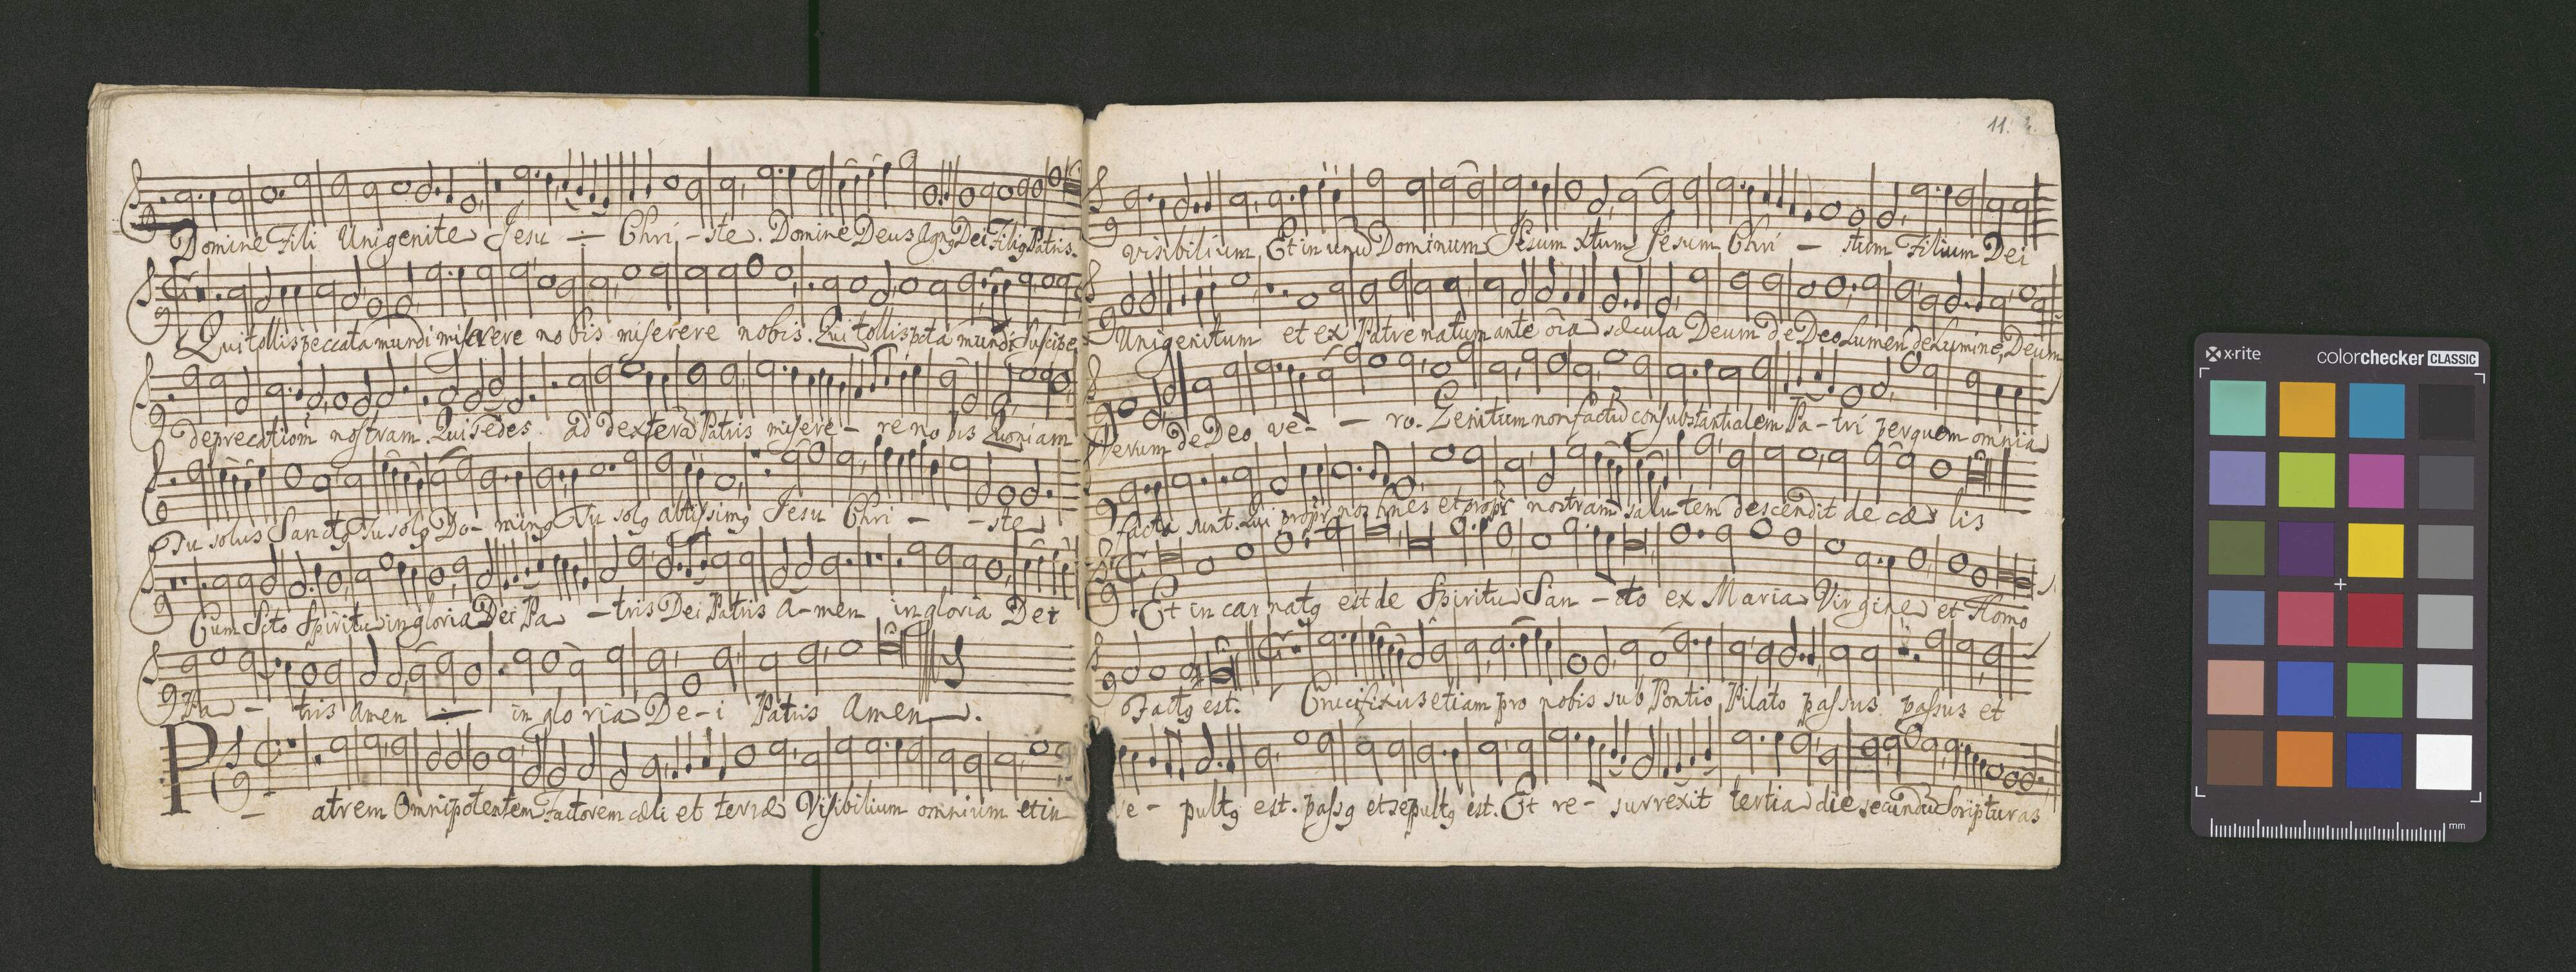 Domine Fili Unigenite Jesu Chri - ste. Domine Deus Agng Dei Filig Patris.
Qui tollis peccata mundi miserere nobis miserere nobis. Qui tollis pcta mundi suscipe
deprecatiom nostram. Qui sedes ad dexterã Patris misere - re nobis Quoniam
Tu solus Sanctg Tu solg Do - ming Tu solg altissimg Jesu Chri - - ste
Cum Scto Spiritu in gloria Dei Pa - tris Dei Patris A - men in gloria Dei
Pa - tris Amen in gloria De - i Patris Amen.
Patrem Omnipotentem Factorem cæli et terræ Visibilium omnium et in
11.
visibilium Et in unũ Dominum Jesum xtum Jesum Chri - stum Filium Dei
Unigenitum et ex Patre natum ante oĩa sæcula Deum de Deo Lumen de Lumine, Deum
Verum de Deo ve - - ro. Genitum non factũ consubstantialem Pa - tri per quem omnia
facta sunt. Qui propr nos hnes et propr nostram salutem descendit de cæ lis
Et in carnatg est de Spiritu San - cto ex Maria Virgine et Homo
Factg est. Crucifixus etiam pro nobis sub Pontio Pilato passus passus et
se - pultg est. passg et sepultg est. Et re - surrexit tertia die secundũ Scripturas
x·rite
colorchecker CLASSIC
mm